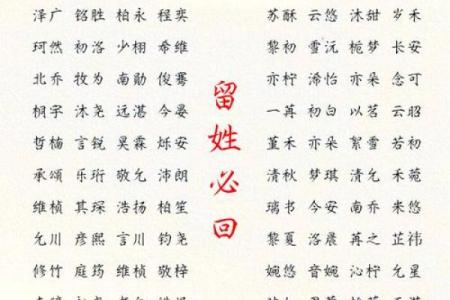 泽广 铭胜 柏永 程奕
珂然 初洛 少栩 希维
北乔 牧为 南勋 俊骞
桐宇 沐尧 远湛 今晏
哲楠 言锐 昊霖 烁安
承颂 乐珩 敬允 沛朗
维桢 其琛 浩扬 柏笙
允川 彦熙 言川 钧尧
修竹 庭筠 维桢 敬梓
留
姓
必
回
苏酥 云悠 沐甜 岁禾
黎初 雪沅 栀梦 长安
亦柠 浠怡 亦朵 念可
一苒 初白 以茗 云昭
堇禾 亦朵 絮雪 若初
清秋 梦琪 清允 禾菀
瑞书 今安 南乔 朱悠
黎夏 洛晨 苒之 芷祎
婉悠 音婉 沁柠 允星